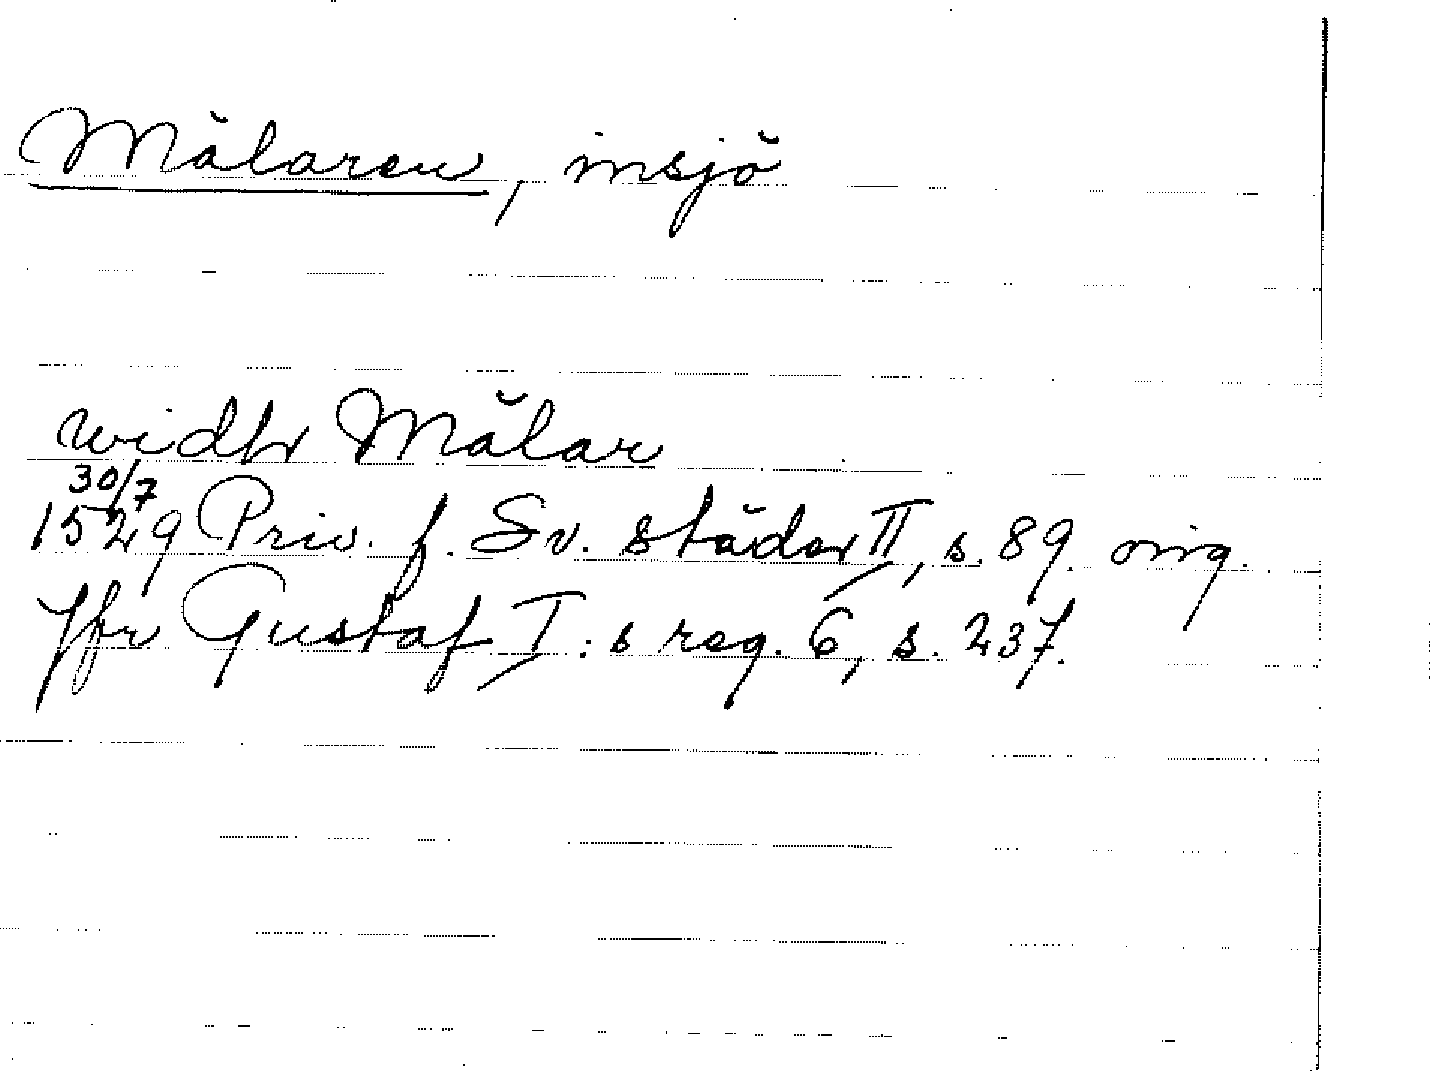 Mälaren, insjö
widhr Mälar
30/7
1529 Priv. f. Sv. städer II, s. 89. orig.
Jfr Gustaf I:s reg. 6, s. 237.